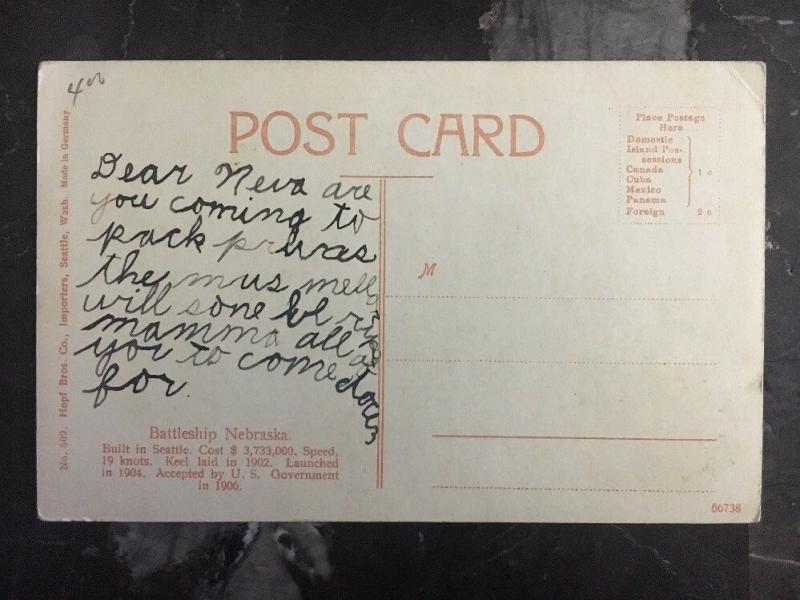 4
POST CARD
Place Postage
Here
Domestic
Island Pos-
sessions
Canada
Cuba
Mexico
Panama
1 c
Foreign 2 c
Dear Neva are
you coming to
pack pruvas
the mus mellons
will sone be ripe
mamma all so
you to come down
for
M
Battleship Nebraska.
Built in Seattle. Cost $ 3,733,000. Speed,
19 knots. Keel laid in 1902. Launched
in 1904. Accepted by U. S. Government
in 1906.
No. 509. Hopf Bros. Co., Importers, Seattle, Wash. Made in Germany
66738